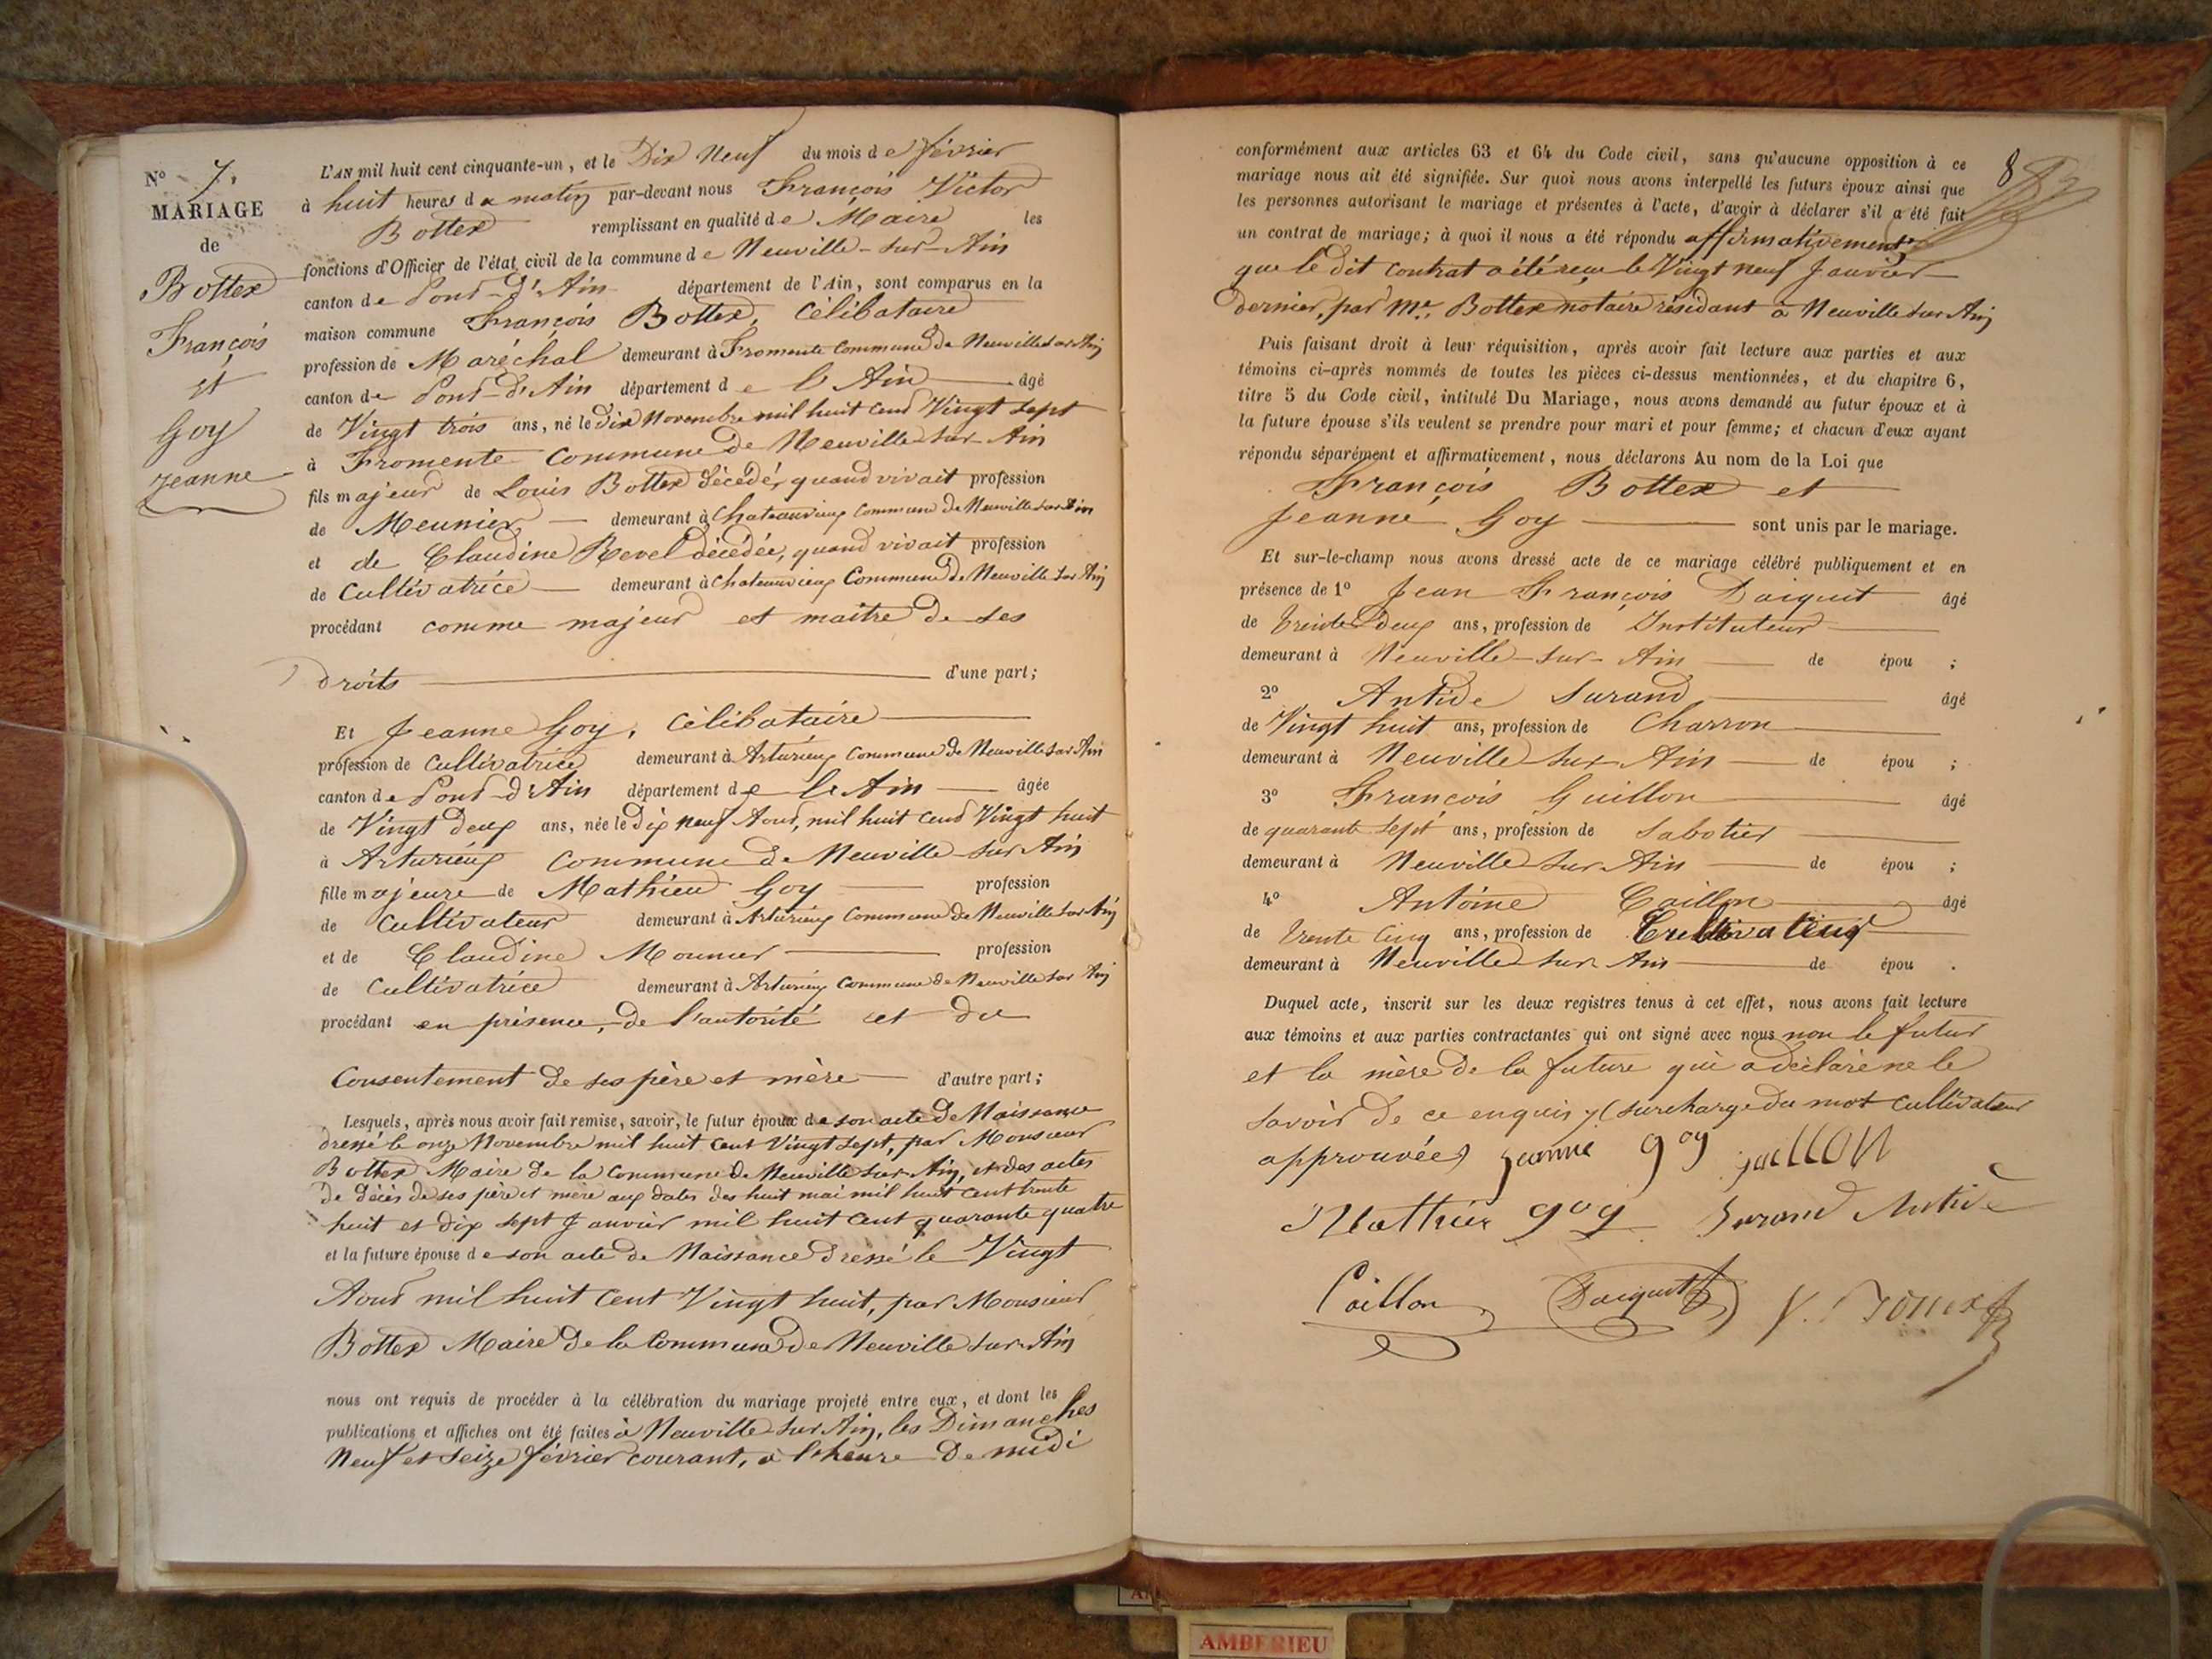 N° 7.
MARIAGE
de
Bottex
François
et
Goy
Jeanne
L'AN mil huit cent cinquante-un, et le Dix Neuf du mois de février
à huit heures du matin par-devant nous François Victor
Bottex remplissant en qualité de Maire les
fonctions d'Officier de l'état civil de la commune de Neuville-sur-Ain
canton de Pont-d'Ain département de l'Ain, sont comparus en la
maison commune François Bottex, Célibataire
profession de Maréchal demeurant à Fromente Commune de Neuville sur Ain
canton de Pont-d'Ain département de l'Ain âgé
de Vingt trois ans, né le dix Novembre mil huit cent Vingt sept
à Fromente Commune de Neuville sur Ain
fils majeur de Louis Bottex décédé, quand vivait profession
de Meunier demeurant à Chateauvieux Commune de Neuville sur Ain
et de Claudine Revel décédée, quand vivait profession
de Cultivatrice demeurant à Chateauvieux Commune de Neuville sur Ain
procédant comme majeur et maître de ses
droits d'une part;
Et Jeanne Goy, Célibataire
profession de Cultivatrice demeurant à Arturieux Commune de Neuville sur Ain
canton de Pont-d'Ain département de l'Ain âgée
de Vingt deux ans, née le dix neuf Aout, mil huit cent Vingt huit
à Arturieux Commune de Neuville sur Ain
fille majeure de Mathieu Goy profession
de Cultivateur demeurant à Arturieux Commune de Neuville sur Ain
et de Claudine Mounier profession
de Cultivatrice demeurant à Arturieux Commune de Neuville sur Ain
procédant en présence, de l'autorité et du
Consentement de ses père et mère d'autre part;
Lesquels, après nous avoir fait remise, savoir, le futur époux de son acte de Naissance
dressé le onze Novembre mil huit cent Vingt sept, par Monsieur
Bottex Maire de la Commune de Neuville sur Ain, et des actes
de décès de ses père et mère aux dates des huit mai mil huit cent trente
huit et dix sept Janvier mil huit cent quarante quatre
et la future épouse de son acte de Naissance dressé le Vingt
Aout mil huit cent Vingt huit, par Monsieur
Bottex Maire de la Commune de Neuville sur Ain
nous ont requis de procéder à la célébration du mariage projeté entre eux, et dont les
publications et affiches ont été faites à Neuville sur Ain, les Dimanches
Neuf et seize février courant, à l'heure de midi
8
conformément aux articles 63 et 64 du Code civil, sans qu'aucune opposition à ce
mariage nous ait été signifiée. Sur quoi nous avons interpellé les futurs époux ainsi que
les personnes autorisant le mariage et présentes à l'acte, d'avoir à déclarer s'il a été fait
un contrat de mariage; à quoi il nous a été répondu affirmativement
que le dit contrat a été reçu le Vingt neuf Janvier
dernier, par Me. Bottex notaire résidant à Neuville sur Ain
Puis faisant droit à leur réquisition, après avoir fait lecture aux parties et aux
témoins ci-après nommés de toutes les pièces ci-dessus mentionnées, et du chapitre 6,
titre 5 du Code civil, intitulé Du Mariage, nous avons demandé au futur époux et à
la future épouse s'ils veulent se prendre pour mari et pour femme; et chacun d'eux ayant
répondu séparément et affirmativement, nous déclarons Au nom de la Loi que
François Bottex et
Jeanne Goy sont unis par le mariage.
Et sur-le-champ nous avons dressé acte de ce mariage célébré publiquement et en
présence de 1° Jean François Daiguet âgé
de trente deux ans, profession de Instituteur
demeurant à Neuville-sur-Ain de épou ;
2° Antide Surand âgé
de Vingt huit ans, profession de Charron
demeurant à Neuville sur Ain de épou ;
3° François Guillon âgé
de quarante sept ans, profession de Sabotier
demeurant à Neuville sur Ain de épou ;
4° Antoine Caillon âgé
de trente cinq ans, profession de Cultivateur
demeurant à Neuville sur Ain de épou .
Duquel acte, inscrit sur les deux registres tenus à cet effet, nous avons fait lecture
aux témoins et aux parties contractantes qui ont signé avec nous non le futur
et la mère de la future qui a déclaré ne le
savoir de ce enquis (surcharge du mot cultivateur
approuvée) jeanne goy guillon
Mathieu goy Surand Antide
Caillon Daiguet V. Bottex
AMBERIEU